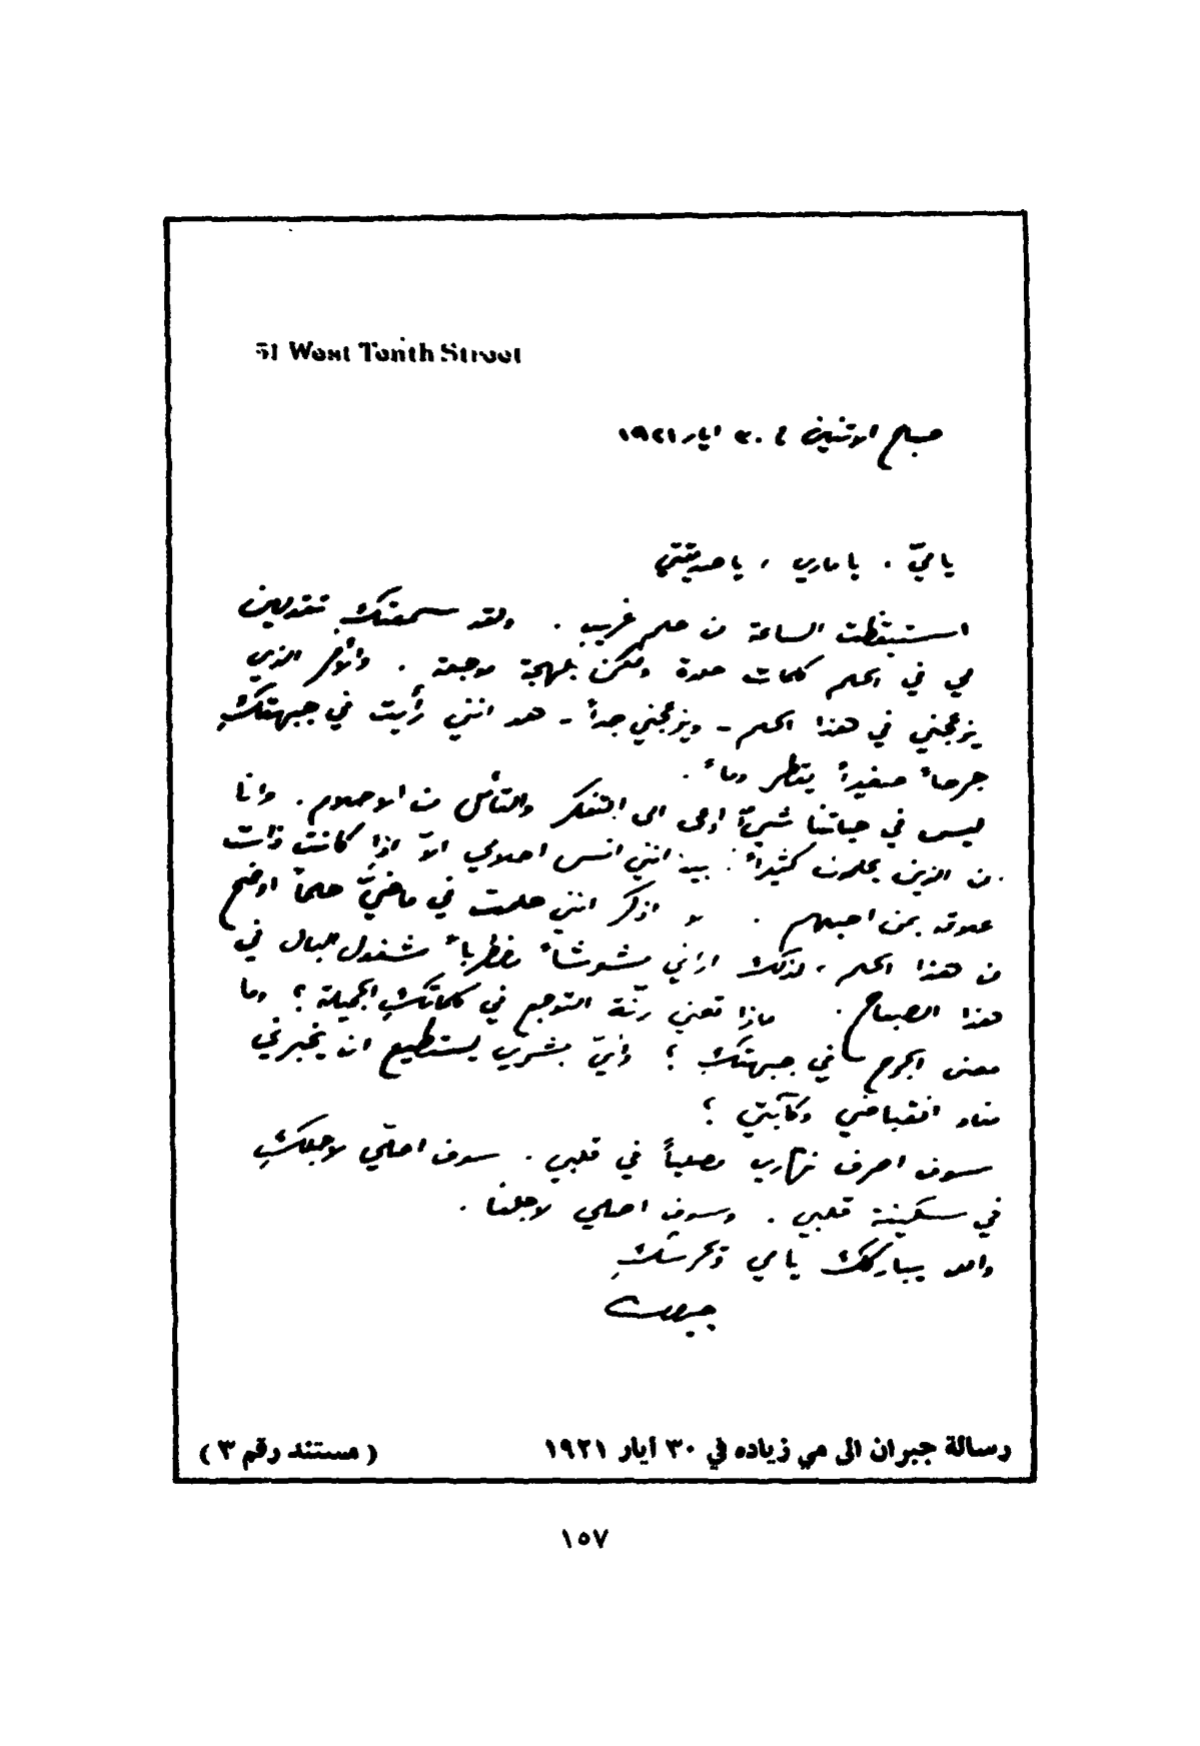 51 West Tenth Street
صباح الاثنين في ٣٠ ايار ١٩٢١
يا ميّ . يا ماري ، يا صديقتي
استيقظت الساعة من حلم غريب . ولقد سمعتكِ تقولين
لي في الحلم كلمات حلوة ولكن بلهجة موجعة . والأمر الذي
يزعجني في هذا الحلم - ويزعجني جداً - هو انني رأيت في جبهتكِ
جرحاً صغيراً يقطر دماً .
ليس في حياتنا شيءٌ ادعى الى التفكر والتأمل من الاحلام . وانا
من الذين يحلمون كثيراً . بيد انني انسى احلامي الاّ اذا كانت ذات
علاقة بمن احبهم . لا اذكر انني حلمت في ماضيّ حلماً اوضح
من هذا الحلم ، لذلك اراني مشوشاً مضطرباً مشغول البال في
هذا الصباح . ماذا تعني رنّة التوجع في كلماتكِ الجميلة ؟ وما
معنى الجرح في جبهتكِ ؟ وأيّ بشري يستطيع ان يخبرني
مفاد انقباضي وكآبتي ؟
سوف اصرف نهاري مصلياً في قلبي . سوف اصلّي لاجلكِ
في سكينة قلبي . وسوف اصلي لاجلنا .
والله يبارككِ يا مي ويحرسكِ
جبران
رسالة جبران الى مي زياده في ٣٠ أيار ١٩٢١ (مستند رقم ٣)
١٥٧